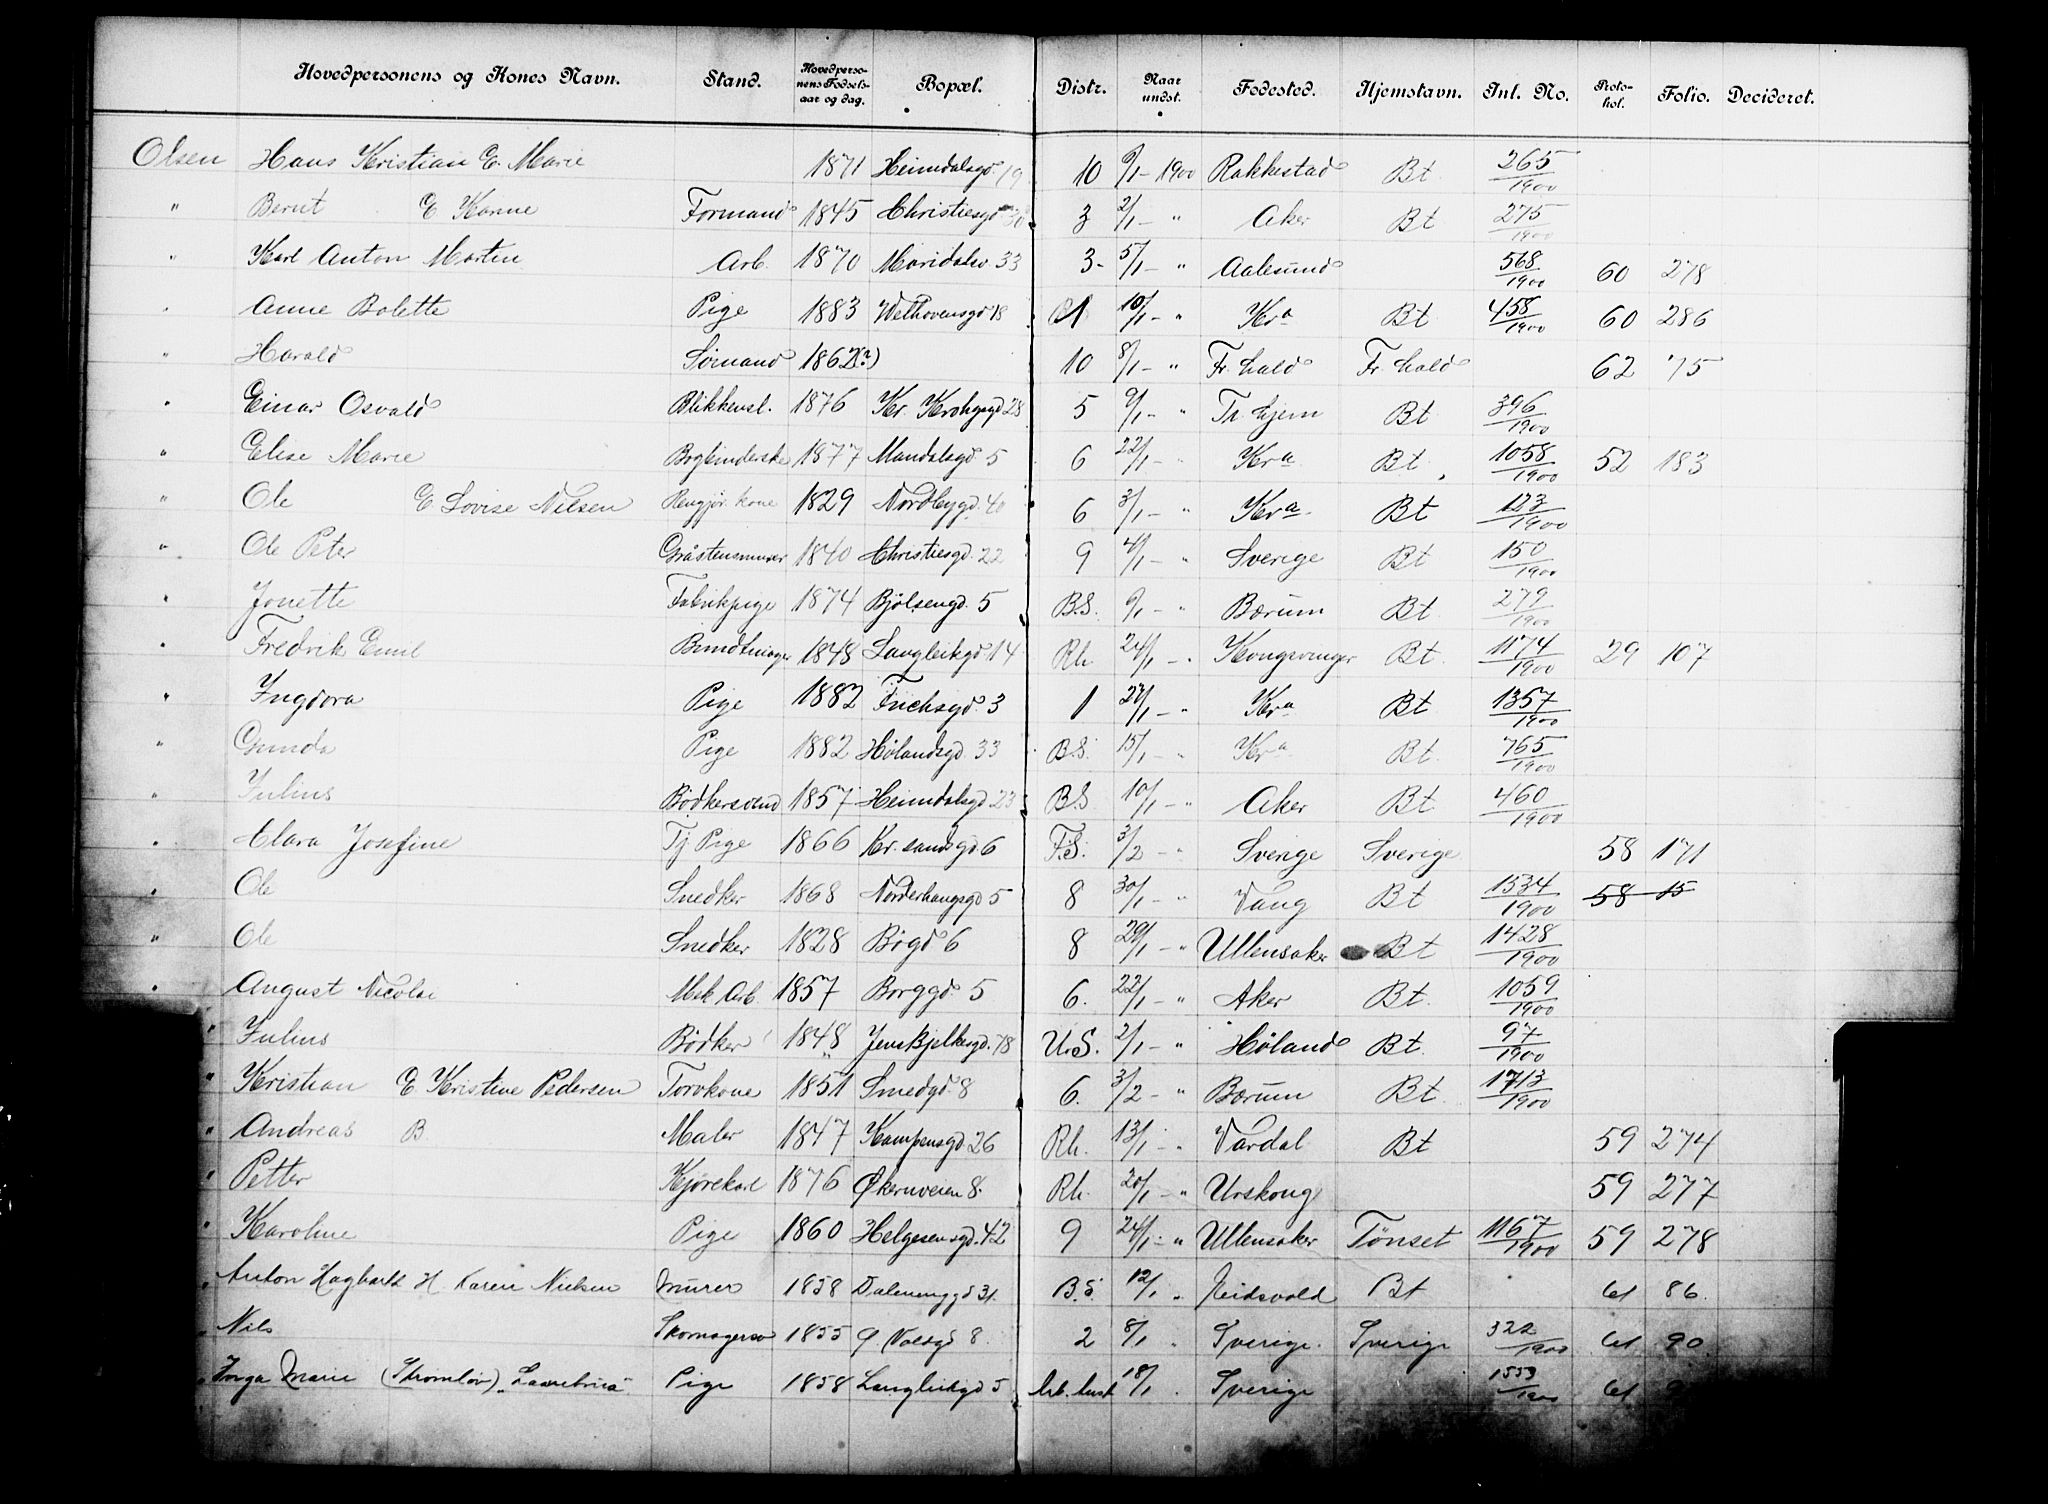 Hovedpersonens og Kones Navn. Stand. Hovedperso-nens Fødsels-aar og dag. Bopæl. Distr. Naar undst. Fødested. Hjemstavn. Inl. No. Proto-kol. Folio. Decideret.
Olsen Hans Kristian E. Marie 1871 Heimdalsgd. 19 10 9/1 - 1900 Rakkestad Bt 265/1900
" Bernt E Karine Formand 1845 Christiesgd 3 2/1 - " Aker Bt 275/1900
" Karl Anton Martin Arb. 1870 Maridalsv. 33 3- 5/1 - " Aalesund 568/1900 60 278
" Anne Bolette Pige 1883 Welhavensgd 18 1 10/1 - " Kra Bt 458/1900 60 286
" Harald Sømand 1862(?) 10 8/1 - " Fr. hald Fr. hald 62 75
" Einar Osvald Blikkensl. 1876 Kr. Krohgsgd 28 5 9/1 - " Th. hjem Bt 396/1900
" Elise Marie Bogbinderske 1877 Mandalsgd 5 6 22/1 - " Kra Bt. 1058/1900 52 183
" Ole E. Lovise Nilsen Rengjør. kone 1829 Nordbygd. 40 6 3/1 - " Kra Bt 123/1900
" Ole Peter Gråstensmurer 1840 Christiesgd. 22 9 4/1 - " Sverige Bt 150/1900
" Jonette Fabrikpige 1874 Bjølsengd. 5 B.S. 9/1 - " Bærum Bt 279/1900
" Fredrik Emil Bundtmager 1848 Langleikgd. 14 Rh. 24/1 - " Kongsvinger Bt. 1174/1900 29 107
" Ingdora Pige 1882 Friehsgd. 3 1 27/1 - " Kra Bt 1357/1900
" Gunda Pige 1882 Hølandsgd 33 B.S. 15/1 - " Kra Bt. 765/1900
" Julius Bødkersvend 1857 Heimdalsgd 23 B.S 10/1 - " Aker Bt 460/1900
" Clara Josefine Tj Pige 1866 Kr. sandsgd 6 F.S. 3/2 - " Sverige Sverige 58 171
" Ole Snedker 1868 Norderhaugsgd 5 8 30/1 - " Vang Bt 1534/1900 58 15
" Ole Snedker 1828 Bøgd 6 8 29/1 - " Ullensaker Bt 1428/1900
" August Nicolai Mek Arb. 1857 Borggd. 5 6. 22/1 - " Aker Bt. 1059/1900
" Julius Bødker 1848 Jens Bjelkesgd. 78 U.S. 2/1 - " Høland Bt. 97/1900
" Kristian E Kristine Pedersen Torvkone 1851 Smedgd. 8 6. 3/2 - " Bærum Bt. 1713/1900
" Andreas B. Maler 1847 Kampensgd 26 Rh. 13/1 - " Vardal Bt 59 274
" Petter Kjørekarl 1876 Økernveien 8. Rh. 20/1 - " Urskoug 59 277
" Karoline Pige 1860 Helgesensgd. 42 9 24/1 - " Ullensaker Tønset 1167/1900 59 278
" Anton Hagbarth H Karen Nielsen Murer 1858 Dalenenggd 31. B.S. 12/1 " Eidsvold Bt 61 86.
" Nils Skomagersv 1855 Ø. Voldsgd 8. 2 8/1 " Sverige. Sverige 322/1900 61 90
" Inga Marie (Strømløv) "Laurebrus" Pige 1858 Langleikgd 5 Arb. anst. 18/1 " Sverige 1553/1900 61